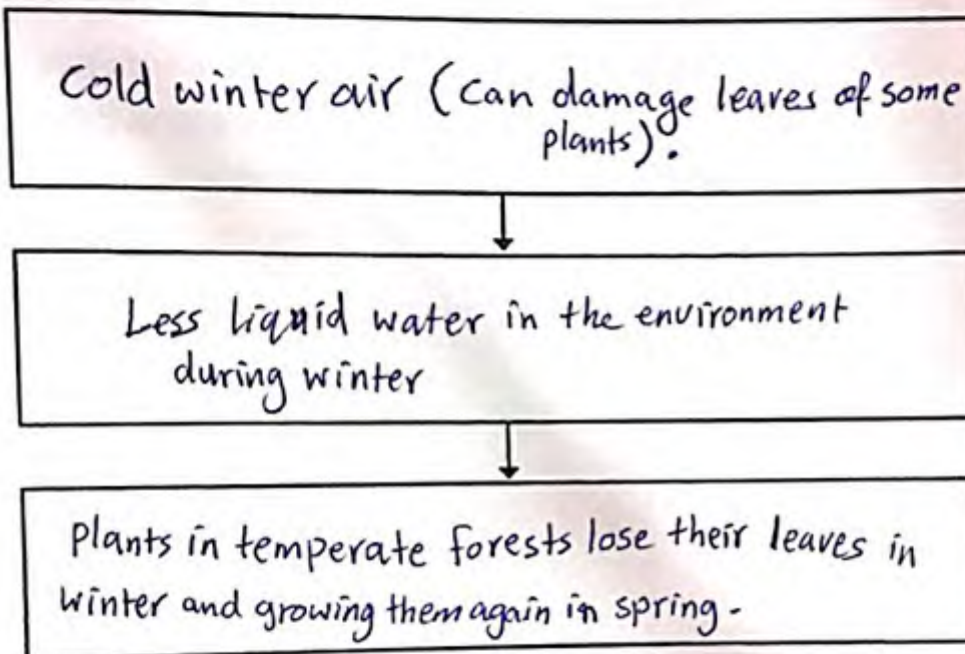 Cold winter air (can damage leaves of some
plants).
Less liquid water in the environment
during winter
plants in temperate forests lose their leaves in
winter and growing them again in spring-